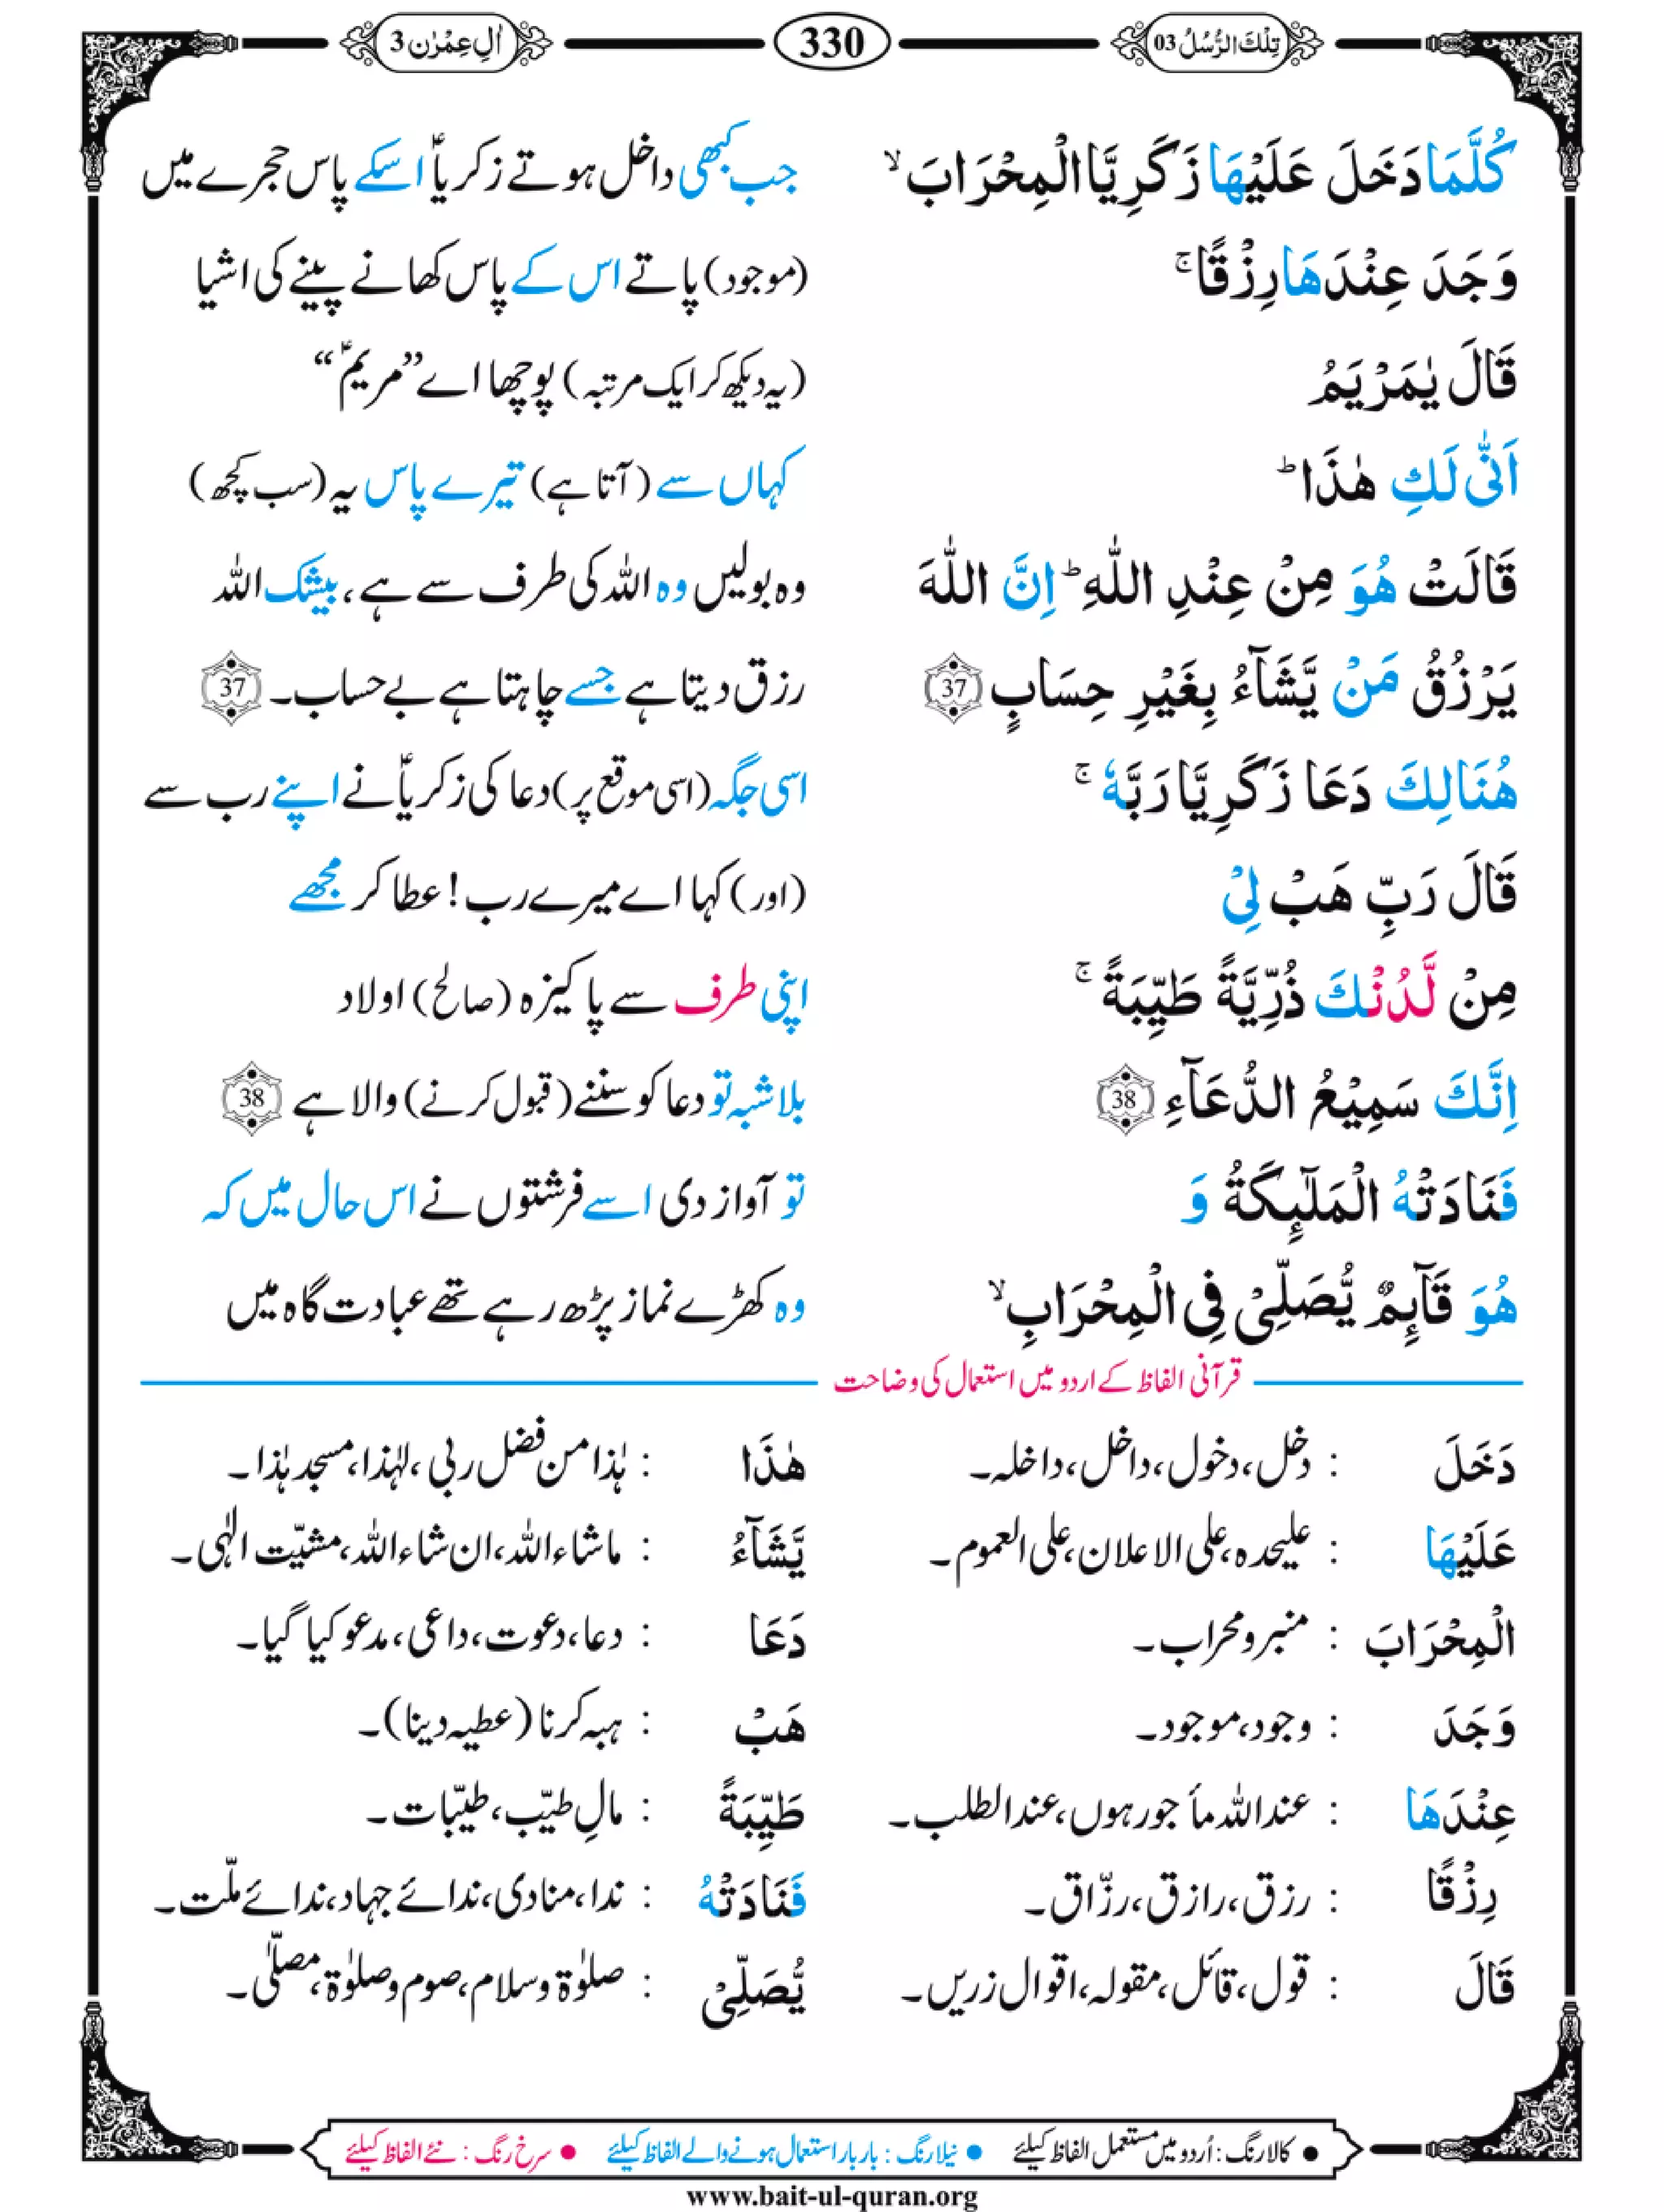 تِلْكَ الرُّسُلُ 03
330
اٰلِ عِمْرٰن 3
كُلَّمَا دَخَلَ عَلَيْهَا زَكَرِيَّا الْمِحْرَابَ ۙ جب کبھی داخل ہوتے زکریاؑ اسکے پاس حجرے میں
وَجَدَ عِنْدَهَا رِزْقًا ۚ (موجود) پاتے اس کے پاس کھانے پینے کی اشیا
قَالَ يٰمَرْيَمُ (یہ دیکھ کر ایک مرتبہ) پوچھا اے ”مریمؑ“
اَنّٰى لَكِ هٰذَا ؕ کہاں سے (آتا ہے) تیرے پاس یہ (سب کچھ)
قَالَتْ هُوَ مِنْ عِنْدِ اللّٰهِ ؕ اِنَّ اللّٰهَ وہ بولیں وہ اللہ کی طرف سے ہے، بیشک اللہ
يَرْزُقُ مَنْ يَّشَآءُ بِغَيْرِ حِسَابٍ 37 رزق دیتا ہے جسے چاہتا ہے بے حساب۔ 37
هُنَالِكَ دَعَا زَكَرِيَّا رَبَّهٗ ۚ اسی جگہ (اسی موقع پر) دعا کی زکریاؑ نے اپنے رب سے
قَالَ رَبِّ هَبْ لِيْ (اور) کہا اے میرے رب! عطا کر مجھے
مِنْ لَّدُنْكَ ذُرِّيَّةً طَيِّبَةً ۚ اپنی طرف سے پاکیزہ (صالح) اولاد
اِنَّكَ سَمِيْعُ الدُّعَآءِ 38 بلاشبہ تو دعا کو سننے (قبول کرنے) والا ہے 38
فَنَادَتْهُ الْمَلٰٓئِكَةُ وَ تو آواز دی اسے فرشتوں نے اس حال میں کہ
هُوَ قَآئِمٌ يُّصَلِّيْ فِي الْمِحْرَابِ ۙ وہ کھڑے نماز پڑھ رہے تھے عبادت گاہ میں
قرآنی الفاظ کے اردو میں استعمال کی وضاحت
دَخَلَ : دخل، دخول، داخل، داخلہ۔ هٰذَا : ہٰذا من فضل ربی، لہٰذا، مسجد ہٰذا۔
عَلَيْهَا : علیحدہ، علی الاعلان، علی العموم۔ يَّشَآءُ : ماشاء اللہ، ان شاء اللہ، مشیّت الٰہی۔
الْمِحْرَابَ : منبر و محراب۔ دَعَا : دعا، دعوت، داعی، مدعو کیا گیا۔
وَجَدَ : وجود، موجود۔ هَبْ : ہبہ کرنا (عطیہ دینا)۔
عِنْدَهَا : عند اللہ ماٴجور ہوں، عند الطلب۔ طَيِّبَةً : مالِ طیّب، طیّبات۔
رِزْقًا : رزق، رازق، رزّاق۔ فَنَادَتْهُ : ندا، منادی، ندائے جہاد، ندائے ملّت۔
قَالَ : قول، قائل، مقولہ، اقوال زریں۔ يُّصَلِّيْ : صلوٰۃ و سلام، صوم و صلوٰۃ، مصلّٰی۔
● کالا رنگ : اُردو میں مستعمل الفاظ کیلئے ● نیلا رنگ : بار بار استعمال ہونے والے الفاظ کیلئے ● سرخ رنگ : نئے الفاظ کیلئے
www.bait-ul-quran.org